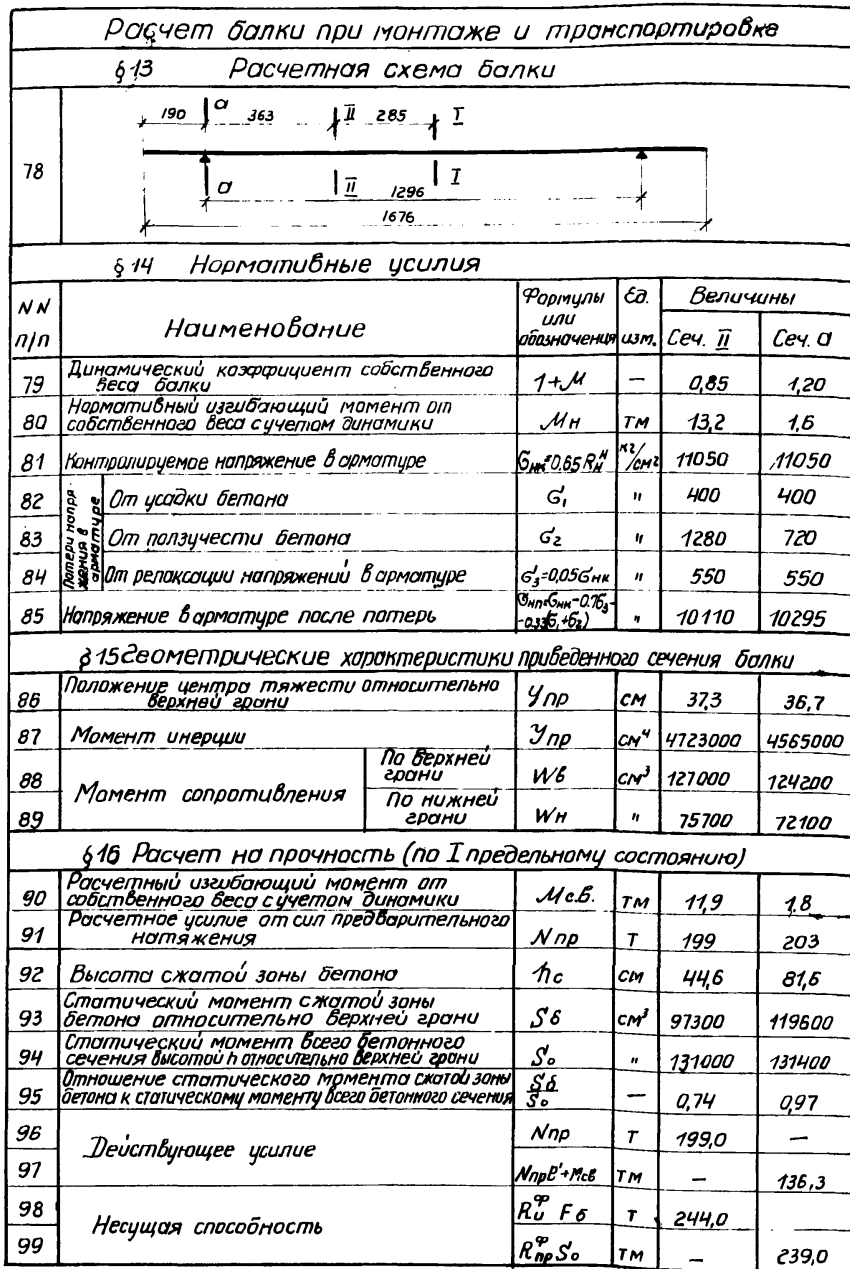 Расчет балки при монтаже и транспортировке
§13 Расчетная схема балки
78
190 а 363 II 285 I
а II 1296 I
1676
§14 Нормативные усилия
NN п/п Наименование Формулы или обозначения Ед. изм. Величины
Сеч. II Сеч. а
79 Динамический коэффициент собственного веса балки 1+М — 0,85 1,20
80 Нормативный изгибающий момент от собственного веса с учетом динамики Мн тм 13,2 1,6
81 Контролируемое напряжение в арматуре бнк=0,65 Rнᴴ кг/см2 11050 11050
Потери напряжения в арматуре
82 От усадки бетона б1 " 400 400
83 От ползучести бетона б2 " 1280 720
84 От релаксации напряжений в арматуре б3=0,05бнк " 550 550
85 Напряжение в арматуре после потерь бнп=бнк-0.7б3--0.33(б1+б2) " 10110 10295
§15 Геометрические характеристики приведенного сечения балки
86 Положение центра тяжести относительно верхней грани Упр см 37,3 36,7
87 Момент инерции Jпр см⁴ 4723000 4565000
Момент сопротивления
88 По верхней грани Wв см³ 127000 124200
89 По нижней грани Wн " 75700 72100
§16 Расчет на прочность (по I предельному состоянию)
90 Расчетный изгибающий момент от собственного веса с учетом динамики Мс.в. тм 11,9 1.8
91 Расчетное усилие от сил предварительного натяжения Nпр т 199 203
92 Высота сжатой зоны бетона hс см 44,6 81,6
93 Статический момент сжатой зоны бетона относительно верхней грани Sб см³ 97300 119600
94 Статический момент всего бетонного сечения высотой h относительно верхней грани So " 131000 131400
95 Отношение статического момента сжатой зоны бетона к статическому моменту всего бетонного сечения Sб/So — 0,74 0,97
Действующее усилие
96 Nпр т 199,0 —
97 Nпре'+Mсв тм — 136,3
Несущая способность
98 Rиᵠ Fб т 244,0
99 Rпрᵠ So тм — 239,0